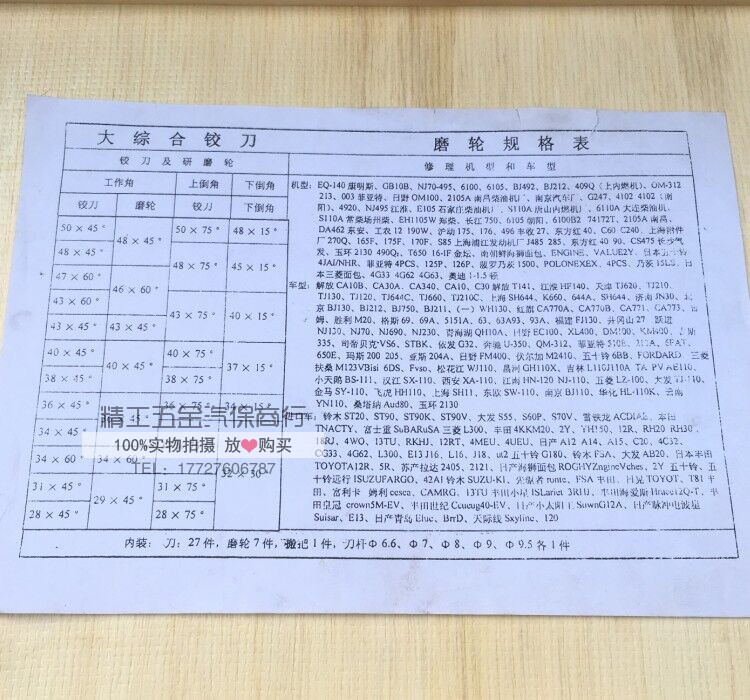 大综合铰刀 磨轮规格表
铰刀及研磨轮 修理机型和车型
工作角 上倒角 下倒角
铰刀 磨轮 铰刀 下倒角
50×45° 48×45° 50×75° 48×15°
48×45° 48×75° 45×15°
47×60° 46×60°
43×60° 43×75° 40×15°
43×45° 43×45°
40×45° 40×45° 40×75° 37×15°
38×45° 38×75°
36×45°
34×45°
34×60° 34×60°
31×45° 29×45° 31×75°
28×45° 28×75°
机型: EQ-140康明斯、GB10B、NJ70-495、6100、6105、BJ492、BJ212、409Q(上内燃机)、OM-312
213、003菲亚特、日野OM100、2105A南昌柴油机厂、南京汽车厂、G247、4102 4102(南
阳)、4920、NJ495江淮、E105石家庄柴油机厂、S110A唐山内燃机厂、6110A大连柴油机、
S110A常柴场州柴、EH1105W郑柴、长江750、6105朝阳、6100B2 74172T、2105A南昌、
DA462东安、工农12 190W、沪动175、176、496丰收27、东方红40、C60 C240、上海附件
厂270Q、165F、175F、170F、S85上海浦江发动机厂J485 285、东方红40 90、CS475长沙气
发、玉环2130 490Q、T650 16-IF金坛、南朝鲜海狮面包、ENGINE、VALUE2Y、日本五十铃
4JAI/NHR、菲亚特4PCS、125P、126P、菠罗乃茨1500、POLONEXEX、4PCS、
本三菱面包、4G33 4G62 4G63、奥迪:-1.5顿
车型: 解放CA10B、CA30A、CA340、CA10、C30解放T141、江淮HF140、天津TJ620、TJ210、
TJ130、TJ120、TJ644C、TJ660、TJ210C、上海SH644、K660、644A、SH644、济南JN30、北
京BJ130、BJ212、BJ750、BJ211、(一)WH130、红旗CA770A、CA770B、CA771、CA773、
姆、胜利M20、格斯69、69A、5151A、63、63A93、93A、福建FJ130、井冈山27 跃进
NJ130、NJ70、NJ690、NJ230、青海湖QH10A、日野EC100、XL400、DM100、KM400、
335、司帝贝克-VS6、STBK、依发G32、奔驰U-350、QM-312、菲亚特
650E、玛斯200 205、亚斯204A、日野FM400、伏尔加M2410、五十铃6BB、FORDARD、三菱
扶桑M123VBisi 6DS、Fvso、松花江WJ110、昌河GH110X、吉林
小天鹅BS-111、汉江SX-110、西安XA-110、江南HN-120 NJ-110、五菱LZ-100、大发TJ-110、
金马SY-110、飞虎HH110、上海SH11、东欧SW-110、南京NJ110、华化HL-110K、云南
YN110、桑塔纳Aud80、玉环2130
进口车: 铃木ST20、ST90、ST90K、ST90V、大发S55、S60P、S70V、雪铁龙ACDIAE、本田
TNACTY、富士重SuBARuSA三菱L300、丰田4KKM20、2Y、YH150、12R、RH20 RH30、
18RJ、4WO、13TU、RKHJ、12RT、4MEU、4UEU、日产A12 A14、A15、C20、4C32、
CG33、4G62、L300、E13 J16、L16、J18、ut2五十铃G180、铃木F5A、大发AB20、日本丰田
TOYOTA12R、5R、苏产拉达2405、2121、日产海狮面包ROGHYZngineVches、2Y五十铃、五
十铃远行ISUZUFARGO、42A1铃木SUZU-KI、先驱者runte、F8A丰田、日晃TOYOT、T81丰
田、富利卡 姆利cesea、CAMRG、13TU丰田小星ISLariet 3RHU、丰田海爱斯Hrace12Q-T、丰
田皇冠crown5M-EV、丰田世纪Ccucug40-EV、日产小太阳王SuwnG12A、日产脉冲电波星
Suisar、E13、日产青岛Eluc、BrrD、天际线Sxyline、120
内装: 刀:27件,磨轮7件,搬把1件,刀杆Φ6.6、Φ7、Φ8、Φ9、Φ9.5各1件
精工五金汽保商行
100%实物拍摄 放♥购买
TEL:17727606787